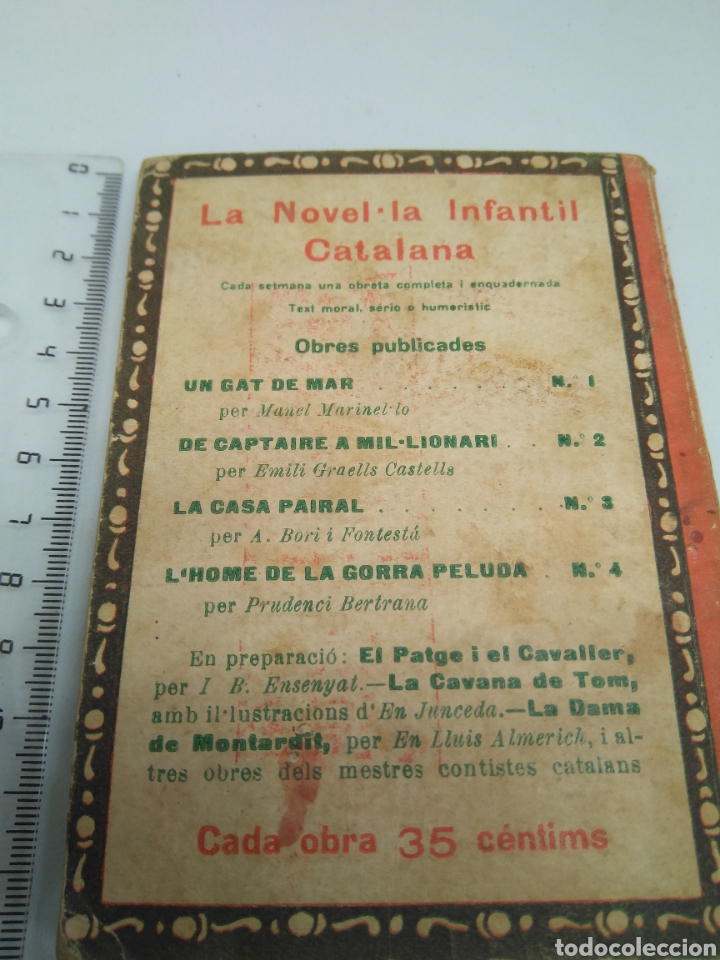 La Novel·la Infantil
Catalana
Cada setmana una obreta completa i enquadernada
Text moral, serio o humoristic
Obres publicades
UN GAT DE MAR . . . . . . . N.º 1
per Manel Marinel·lo
DE CAPTAIRE A MIL·LIONARI . . N.º 2
per Emili Graells Castells
LA CASA PAIRAL . . . . . . . N.º 3
per A. Bori i Fontestá
L'HOME DE LA GORRA PELUDA . N.º 4
per Prudenci Bertrana
En preparació: El Patge i el Cavaller,
per I B. Ensenyat.—La Cavana de Tom,
amb il·lustracions d'En Junceda.—La Dama
de Montardit, per En Lluis Almerich, i al-
tres obres dels mestres contistes catalans
Cada obra 35 céntims
0
1
2
3
4
5
6
7
8
9
todocoleccion